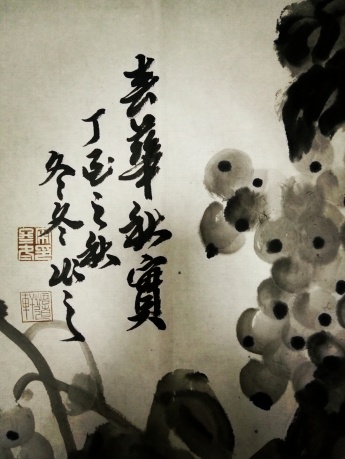 春華秋實
丁酉之秋
冬冬作之